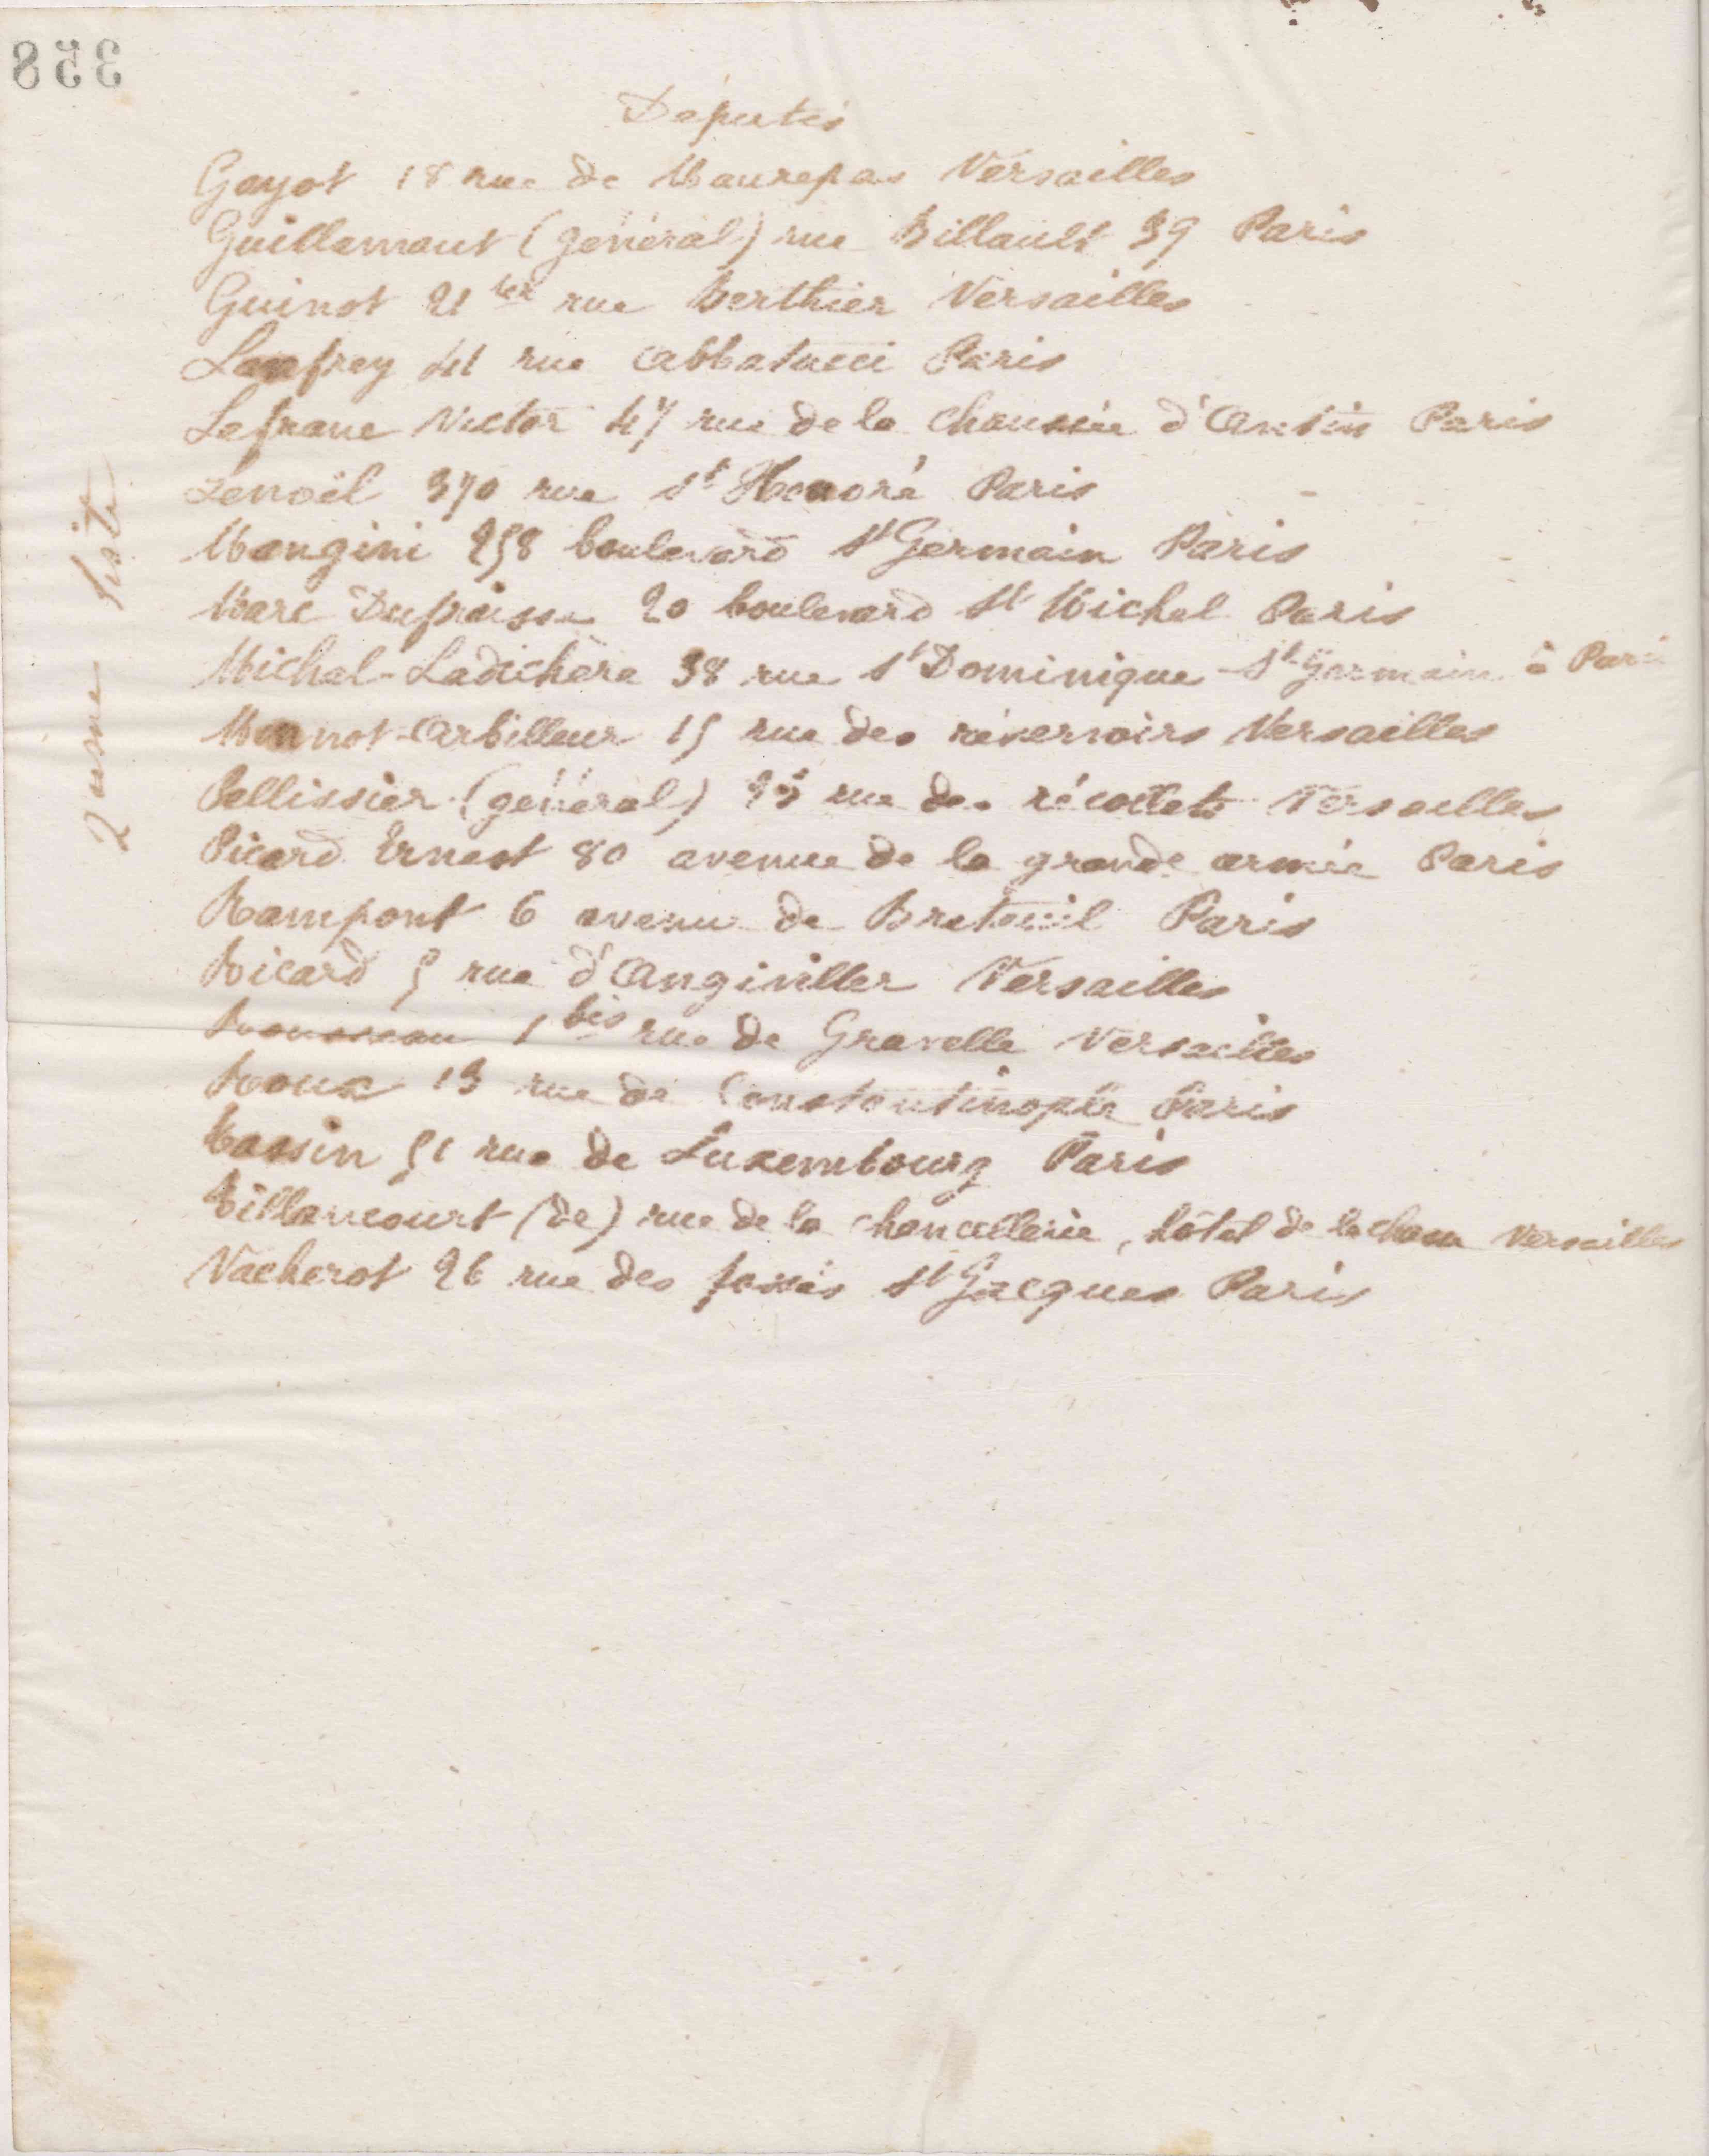 358
Députés
Gayot 18 rue de Maurepas Versailles
Guillemaut (général) rue Billault 39 Paris
Guinot 21 ter rue Berthier Versailles
Lanfrey 41 rue Abbatucci Paris
Lefranc Victor 47 rue de la chaussée d'Antin Paris
Lenoël 370 rue St Honoré Paris
Mangini 258 boulevard St Germain Paris
Marc Dufraisse 20 boulevard St Michel Paris
Michal-Ladichère 38 rue St Dominique St Germain à Paris
Monnot-Arbilleur 15 rue des réservoirs Versailles
Pellissier (général) rue des récollets Versailles
Picard Ernest 80 avenue de la grande armée Paris
Rampont 6 avenue de Breteuil Paris
Ricard 5 rue d'Angiviller Versailles
Rousseau 1 bis rue de Gravelle Versailles
Roux 13 rue de Constantinople Paris
51 rue de Luxembourg Paris
Tillancourt (de) rue de la chancellerie, hôtel de la chasse Versailles
Vacherot 26 rue des fossés St Jacques Paris
2 eme liste